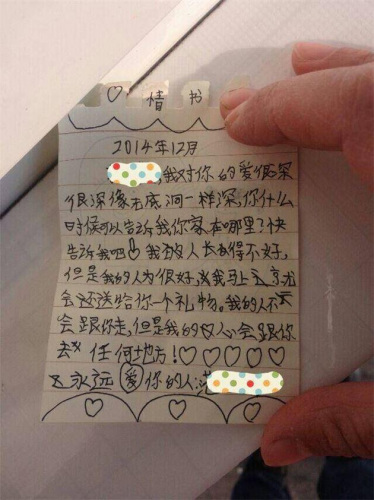 ♡ 情书
2014年12月
,我对你的爱很深
很深像无底洞一样深,你什么
时候可以告诉我你家在哪里?快
告诉我吧!我的人长的得不好,
但是我的人为很好,我马上
会还送给你一个礼物。我的人不
会跟你走,但是我的心会跟你
去任何地方!♡♡♡♡♡
永远爱你的人:范